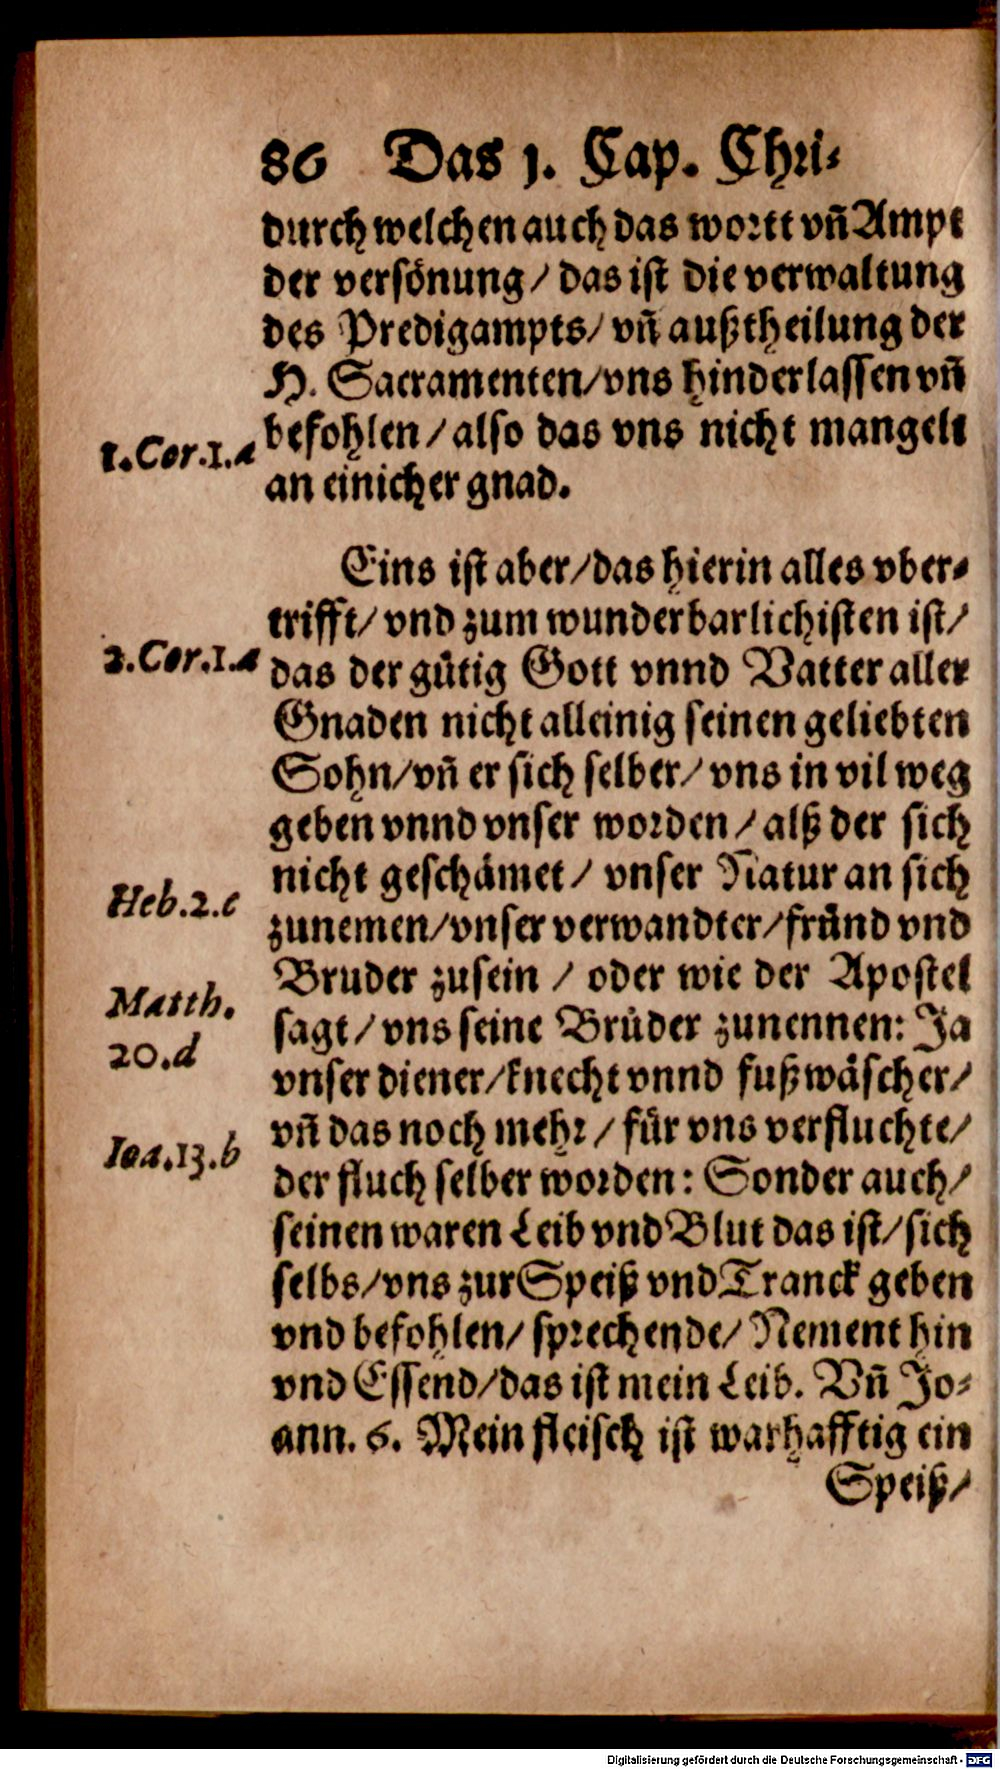 86 Das 1. Cap. Chri-
durch welchen auch das wortt vñ Ampt
der versönung/ das ist die verwaltung
des Predigampts/ vñ außtheilung der
H. Sacramenten/ vns hinderlassen vñ
1.Cor.1.a befohlen/ also das vns nicht mangelt
an einicher gnad.
Eins ist aber/ das hierin alles vber-
trifft/ vnd zum wunderbarlichisten ist/
2.Cor.1.a das der gütig Gott vnnd Vatter aller
Gnaden nicht alleinig seinen geliebten
Sohn/ vñ er sich selber/ vns in vil weg
geben vnnd vnser worden/ alß der sich
nicht geschämet/ vnser Natur an sich
Heb.2.c zunemen/ vnser verwandter/ fründ vnd
Bruder zusein / oder wie der Apostel
Matth. sagt/ vns seine Brüder zunennen: Ja
20.d vnser diener/ knecht vnnd fußwäscher/
vñ das noch mehr/ für vns verfluchte/
Ioa.13.b der fluch selber worden: Sonder auch/
seinen waren Leib vnd Blut das ist/ sich
selbs/ vns zur Speiß vnd Tranck geben
vnd befohlen/ sprechende/ Nement hin
vnd Essend/ das ist mein Leib. Vñ Jo-
ann. 6. Mein fleisch ist warhafftig ein
Speiß/
Digitalisierung gefördert durch die Deutsche Forschungsgemeinschaft - DFG